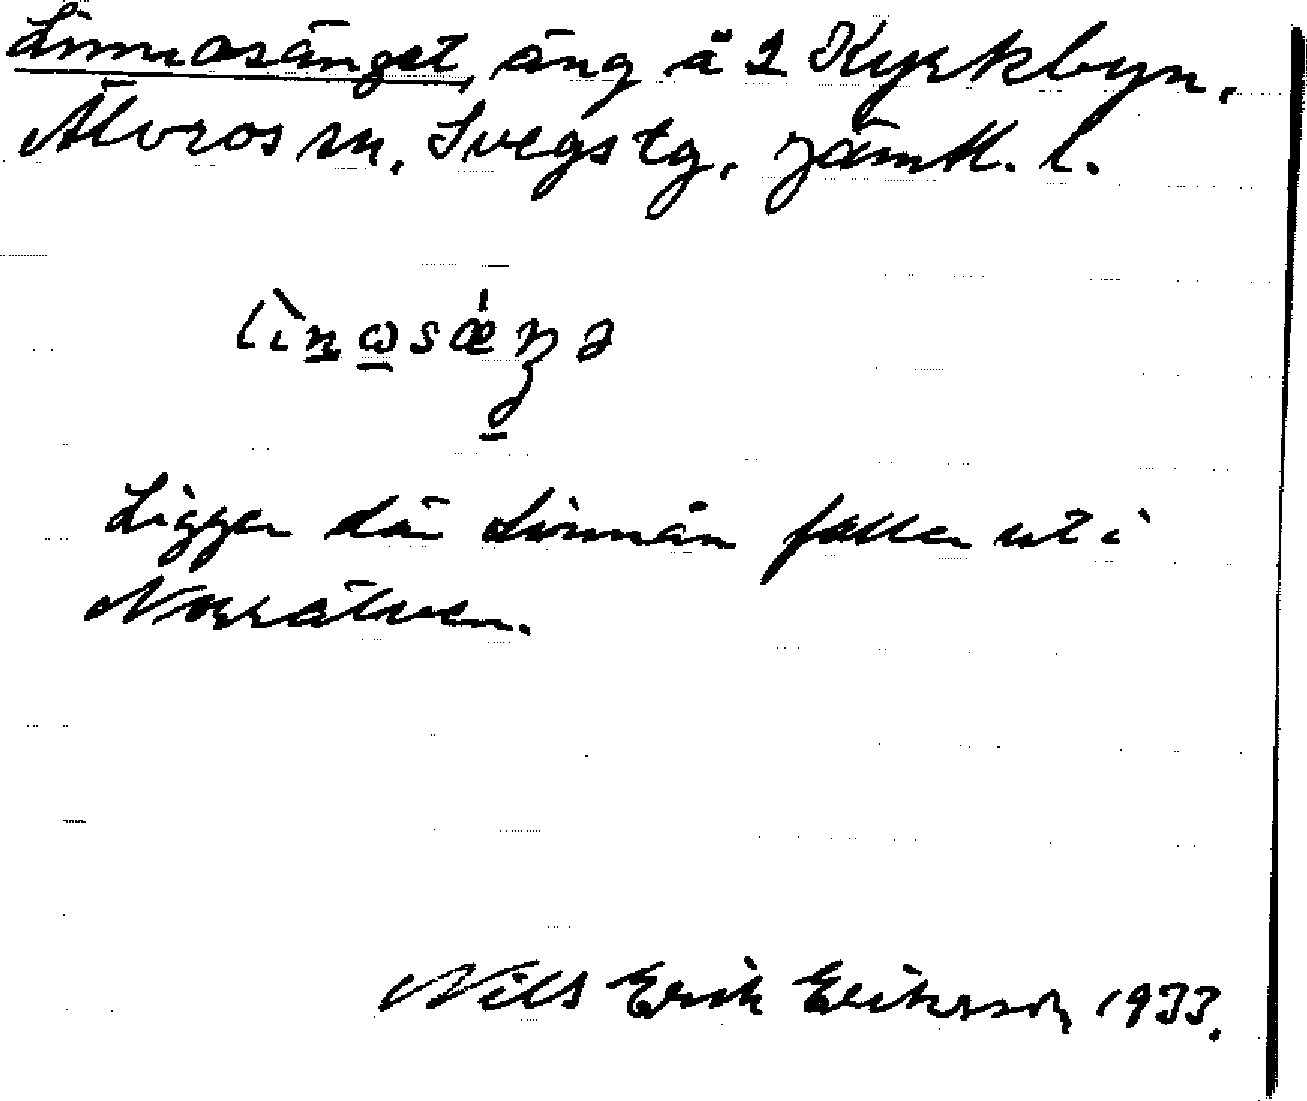 Linnosänget, äng å 2 Kyrkbyn,
Älvros sn, Svegs tg, Jämtl. l.
Ligger där Linnån faller ut i
Norrälven.
Nils Erik Eriksson 1933.